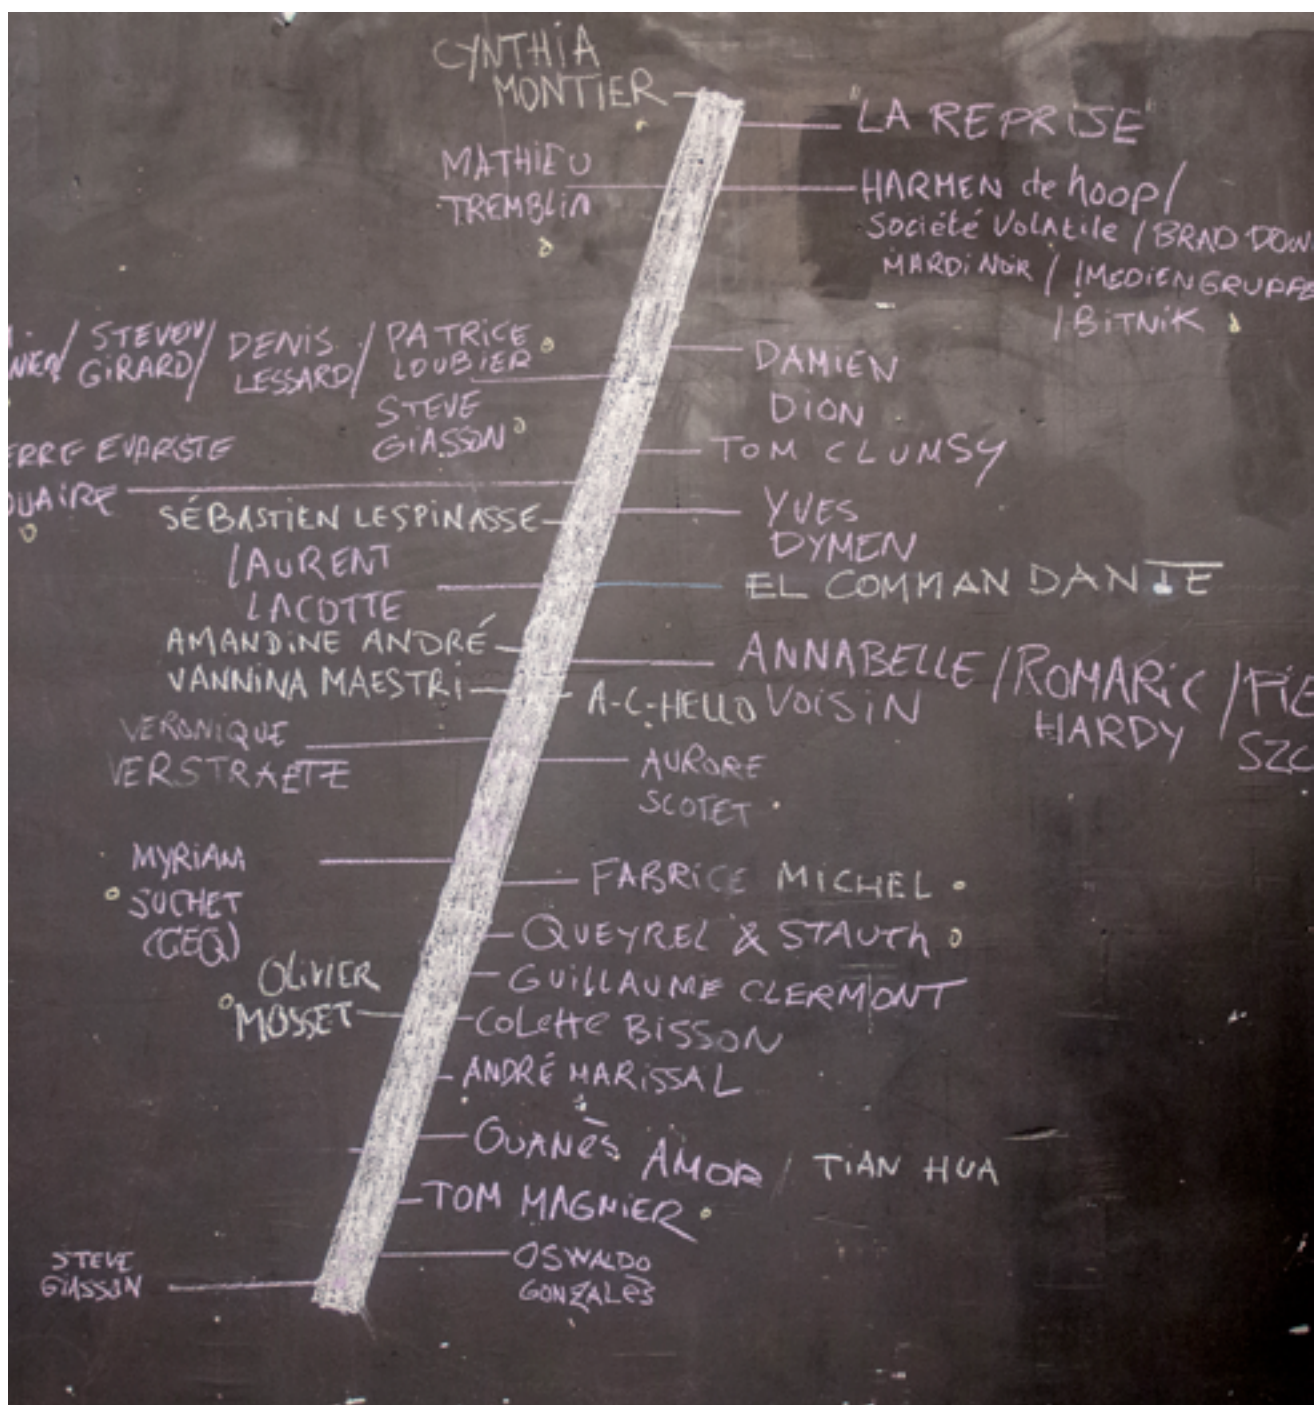 CYNTHIA
MONTIER
"LA REPRISE"
MATHIEU
TREMBLIN
HARMEN de hoop /
Société Volatile / BRAD DOW
MARDI NOIR / !MEDIENGRUPPE
/ BITNIK
STEVEN / DENIS / PATRICE
GIRARD / LESSARD / LOUBIER
STEVE
GIASSON
DAMIEN
DION
TOM CLUMSY
ERRE EVARISTE
OUAIRE
SÉBASTIEN LESPINASSE
YVES
DYMEN
LAURENT
LACOTTE
EL COMMANDANTE
AMANDINE ANDRÉ
VANNINA MAESTRI
ANNABELLE / ROMARIC / PIE
VOISIN HARDY SZC
A-C-HELLO
VERONIQUE
VERSTRAETE
AURORE
SCOTET
MYRIAM
SUCHET
(CEQ)
FABRICE MICHEL
QUEYREL & STAUTH
OLIVIER
MOSSET
GUILLAUME CLERMONT
COLETTE BISSON
ANDRÉ MARISSAL
OUANÈS AMOR / TIAN HUA
TOM MAGNIER
STEVE
GIASSON
OSWALDO
GONZALÈS